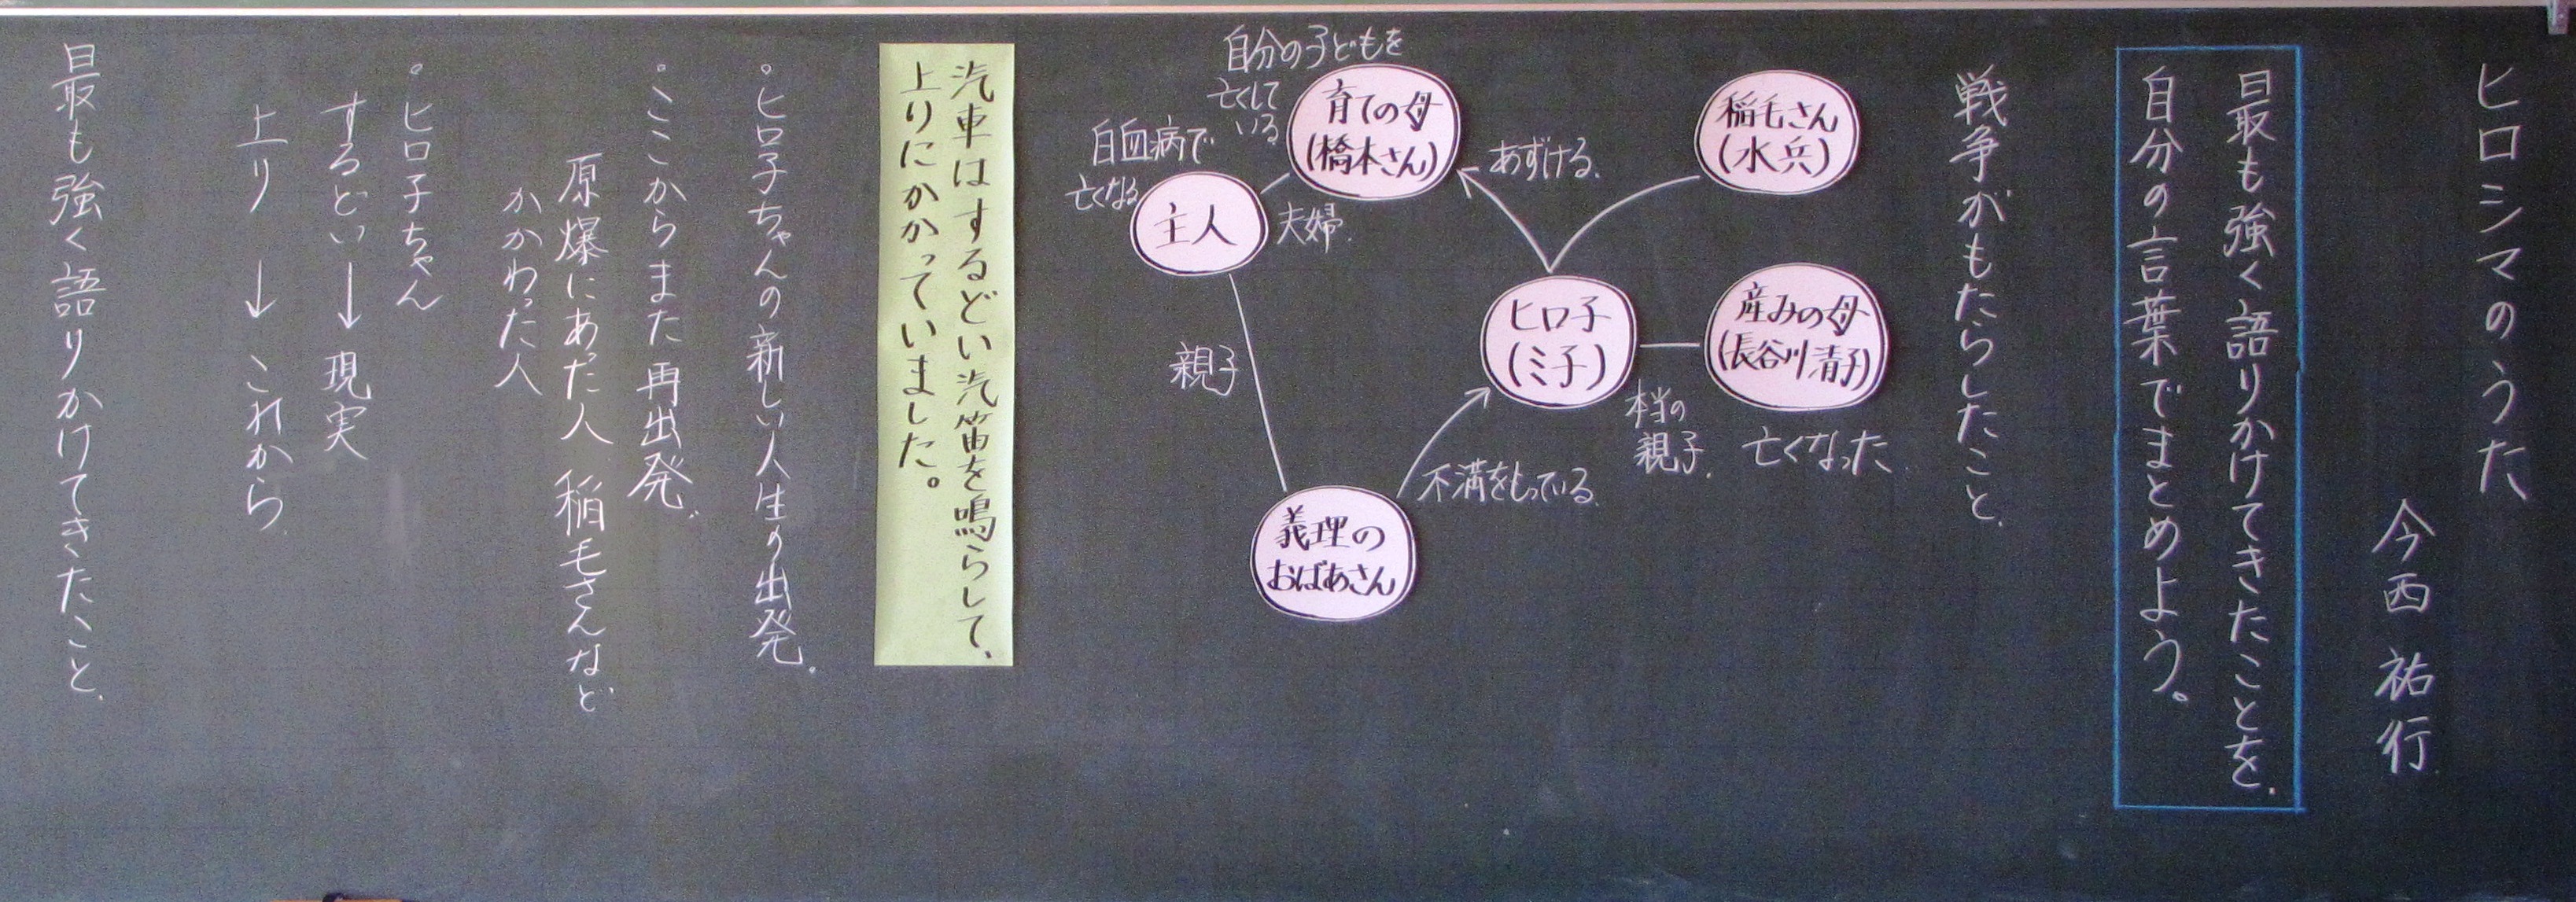 ヒロシマのうた
今西 祐行
最も強く語りかけてきたことを、
自分の言葉でまとめよう。
戦争がもたらしたこと、
稲毛さん
(水兵)
産みの母
(長谷川清子)
亡くなった
本当の
親子、
ヒロ子
(ミ子)
あずける、
育ての母
(橋本さん)
自分の子どもを
亡くして
いる
夫婦、
主人
白血病で
亡くなる
親子
義理の
おばあさん
不満をもっている、
汽車はするどい汽笛を鳴らして、
上りにかかっていました。
。ヒロ子ちゃんの新しい人生の出発。
。ここからまた再出発、
原爆にあった人、稲毛さんなど
かかわった人
。ヒロ子ちゃん
するどい→現実
上り→これから
最も強く語りかけてきたこと、